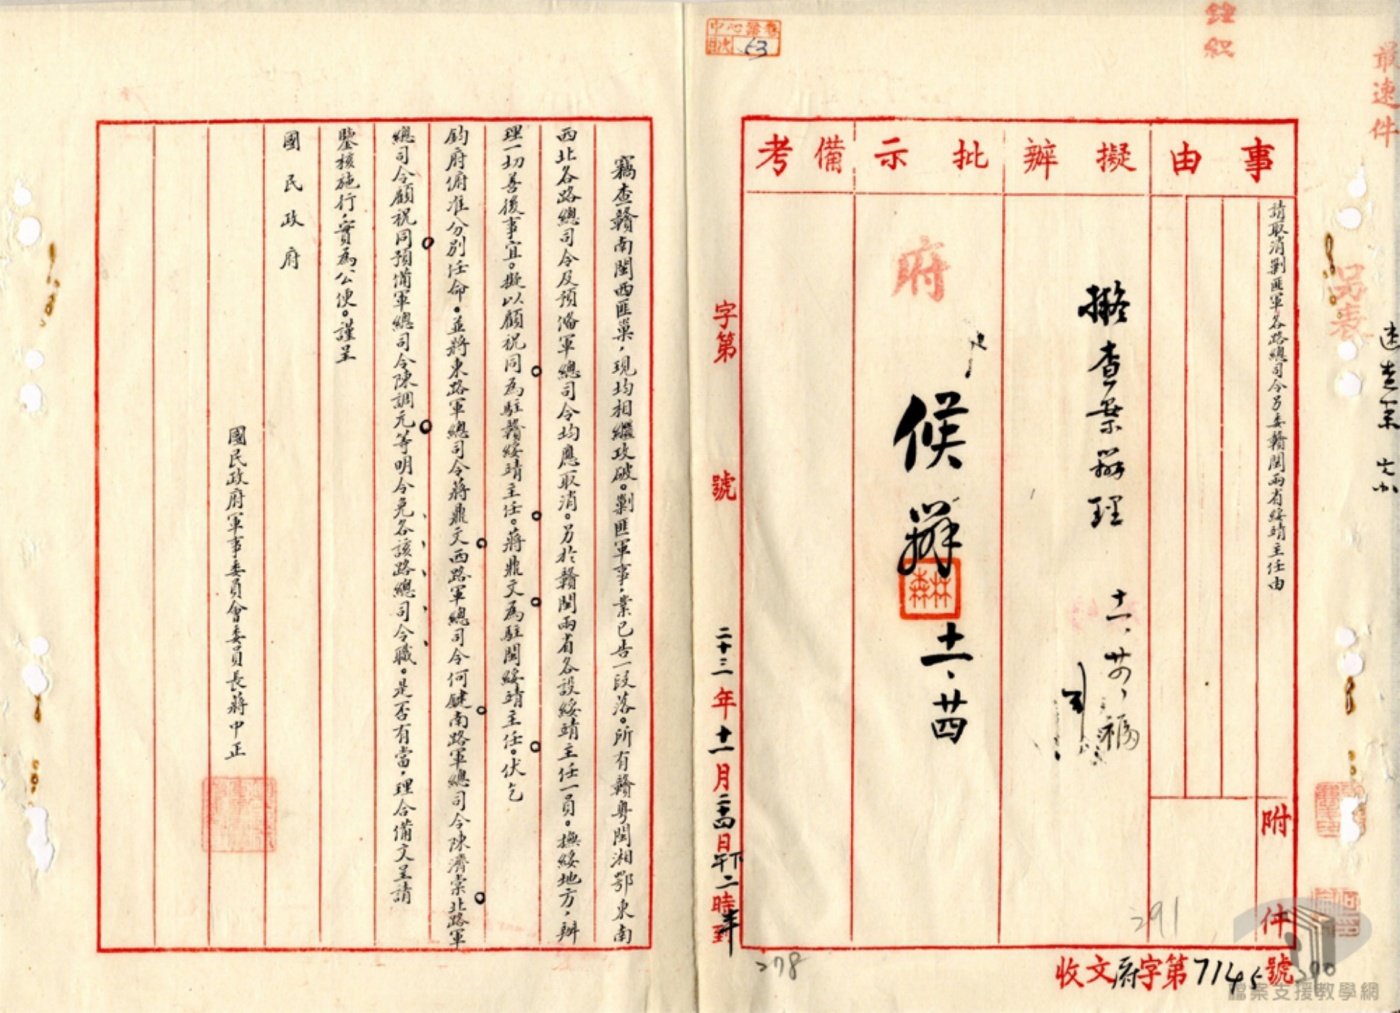 最速件
鈐紅
事由
擬辦
批示
備考
請取消剿匪軍各路總司令另委贛閩兩省綏靖主任由
附件
擬查案辦理
十一、廿四、
府
候辦
十一、廿四
收文府字第7145號
291
字第　號
二十三年十一月二十四日下午二時半到
278
中心發卷
53
竊查贛南閩西匪巢，現均相繼攻破。剿匪軍事，業已告一段落。所有贛粵閩湘鄂東南
西北各路總司令及預備軍總司令均應取消。另於贛閩兩省各設綏靖主任一員。撫綏地方，辦
理一切善後事宜。擬以顧祝同為駐贛綏靖主任。蔣鼎文為駐閩綏靖主任。伏乞
鈞府俯准分別任命。並將東路軍總司令蔣鼎文西路軍總司令何鍵南路軍總司令陳濟棠北路軍
總司令顧祝同預備軍總司令陳調元等明令免各該路總司令職。是否有當，理合備文呈請
鑒核施行，實為公便。謹呈
國民政府
國民政府軍事委員會委員長蔣中正
檔案支援教學網